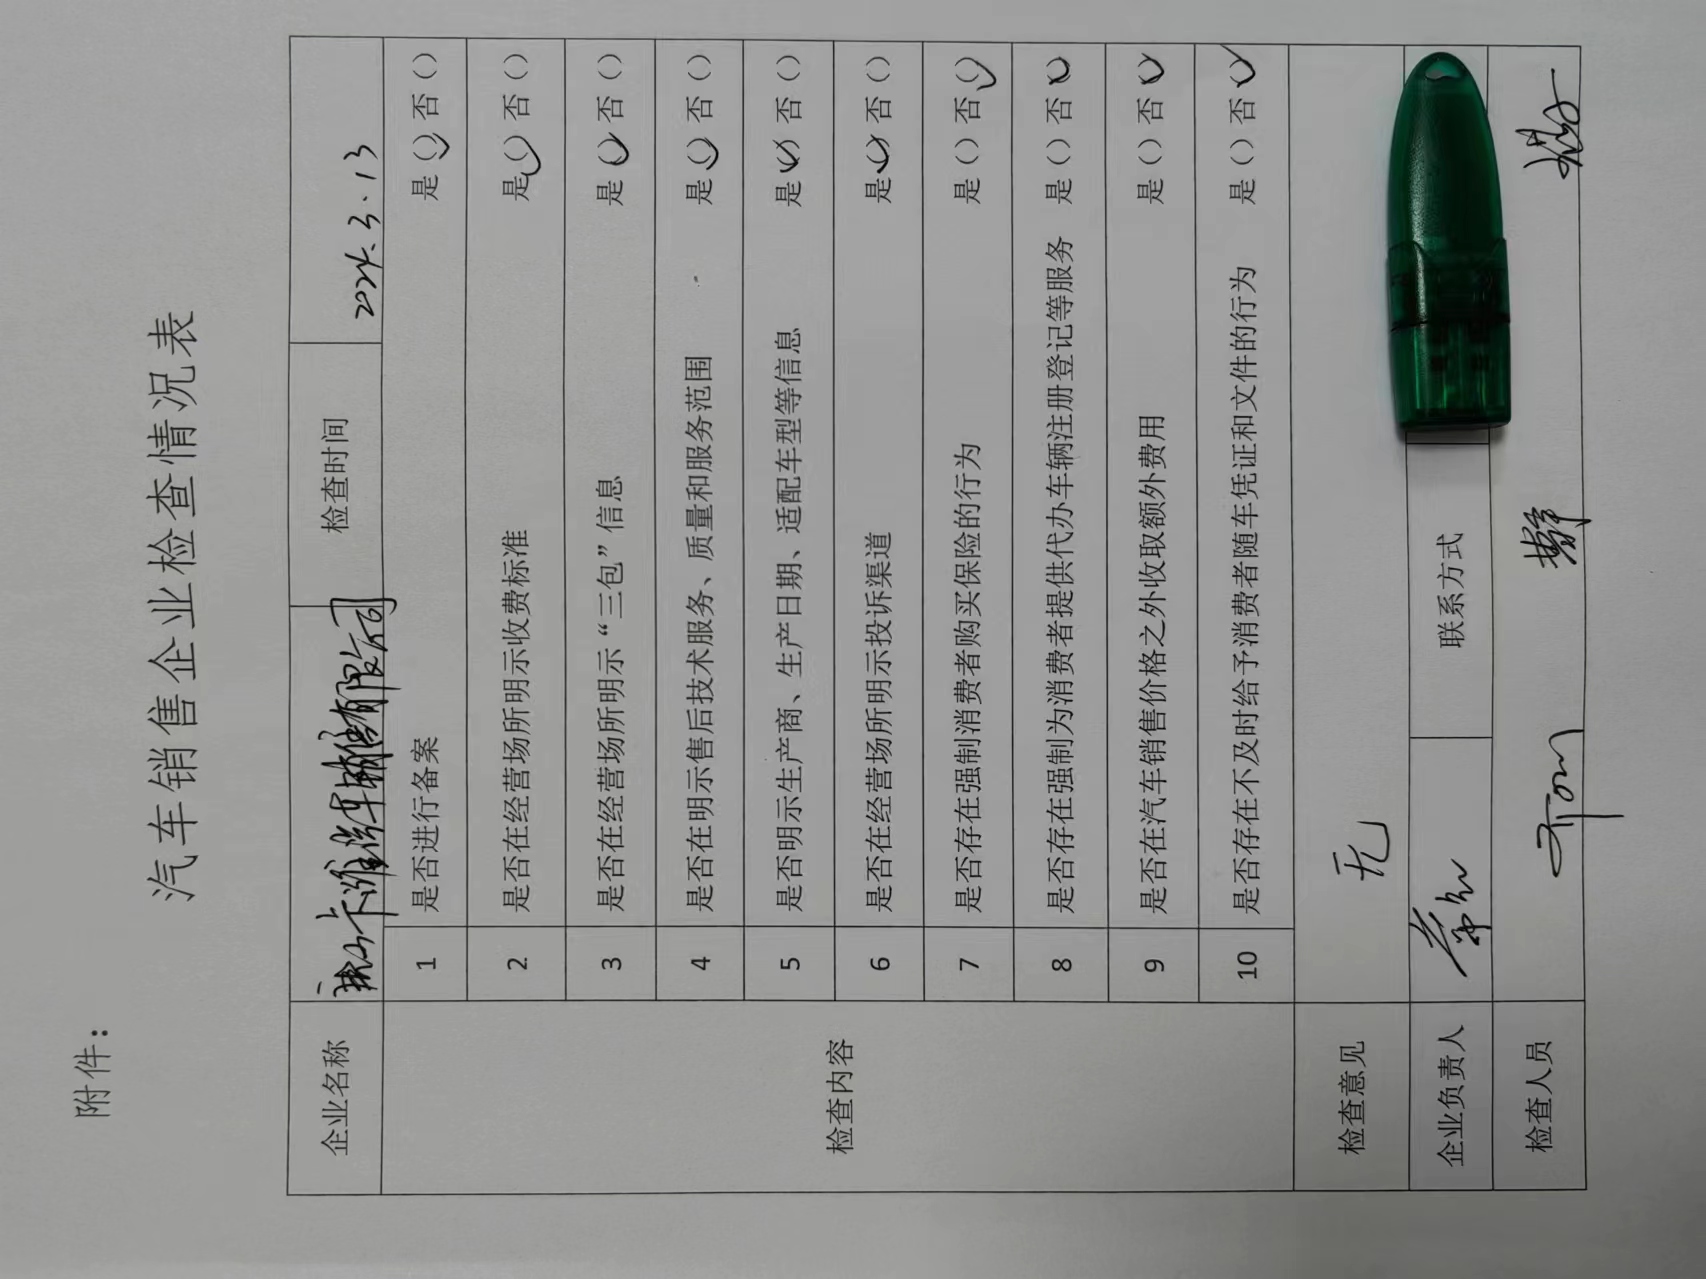 附件：
汽车销售企业检查情况表
企业名称 唐山卡潍汽车销售有限公司 检查时间 2024.3.13
检查内容
1 是否进行备案 是(✓)否()
2 是否在经营场所明示收费标准 是(✓)否()
3 是否在经营场所明示“三包”信息 是(✓)否()
4 是否在明示售后技术服务、质量和服务范围 是(✓)否()
5 是否明示生产商、生产日期、适配车型等信息 是(✓)否()
6 是否在经营场所明示投诉渠道 是(✓)否()
7 是否存在强制消费者购买保险的行为 是()否(✓)
8 是否存在强制为消费者提供代办车辆注册登记等服务 是()否(✓)
9 是否在汽车销售价格之外收取额外费用 是()否(✓)
10 是否存在不及时给予消费者随车凭证和文件的行为 是()否(✓)
检查意见 无
企业负责人 联系方式
检查人员